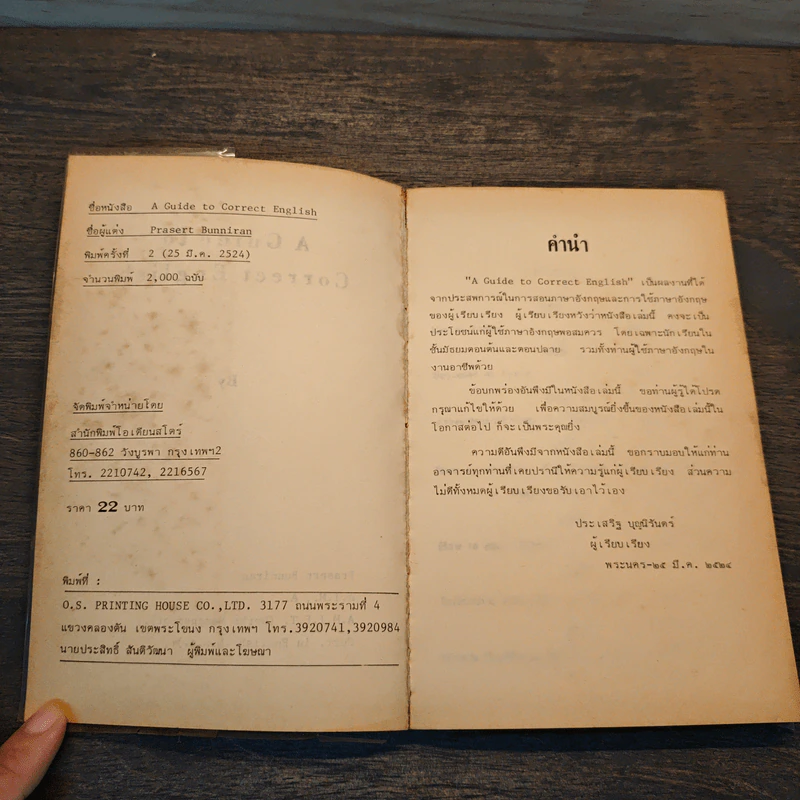 ชื่อหนังสือ A Guide to Correct English
ชื่อผู้แต่ง Prasert Bunniran
พิมพ์ครั้งที่ 2 (25 มี.ค. 2524)
จำนวนพิมพ์ 2,000 ฉบับ
จัดพิมพ์จำหน่ายโดย
สำนักพิมพ์โอเดียนสโตร์
860-862 วังบูรพา กรุงเทพฯ2
โทร. 2210742, 2216567
ราคา 22 บาท
พิมพ์ที่ :
O.S. PRINTING HOUSE CO.,LTD. 3177 ถนนพระรามที่ 4
แขวงคลองตัน เขตพระโขนง กรุงเทพฯ โทร.3920741,3920984
นายประสิทธิ์ สันติวัฒนา ผู้พิมพ์และโฆษณา
คำนำ
"A Guide to Correct English" เป็นผลงานที่ได้
จากประสพการณ์ในการสอนภาษาอังกฤษและการใช้ภาษาอังกฤษ
ของผู้เรียบเรียง ผู้เรียบเรียงหวังว่าหนังสือเล่มนี้ คงจะเป็น
ประโยชน์แก่ผู้ใช้ภาษาอังกฤษพอสมควร โดยเฉพาะนักเรียนใน
ชั้นมัธยมตอนต้นและตอนปลาย รวมทั้งท่านผู้ใช้ภาษาอังกฤษใน
งานอาชีพด้วย
ข้อบกพร่องอันพึงมีในหนังสือเล่มนี้ ขอท่านผู้รู้ได้โปรด
กรุณาแก้ไขให้ด้วย เพื่อความสมบูรณ์ยิ่งขึ้นของหนังสือเล่มนี้ใน
โอกาสต่อไป ก็จะเป็นพระคุณยิ่ง
ความดีอันพึงมีจากหนังสือเล่มนี้ ขอกราบมอบให้แก่ท่าน
อาจารย์ทุกท่านที่เคยปรานีให้ความรู้แก่ผู้เรียบเรียง ส่วนความ
ไม่ดีทั้งหมดผู้เรียบเรียงขอรับเอาไว้เอง
ประเสริฐ บุญนิรันดร์
ผู้เรียบเรียง
พระนคร-๒๕ มี.ค. ๒๕๒๔